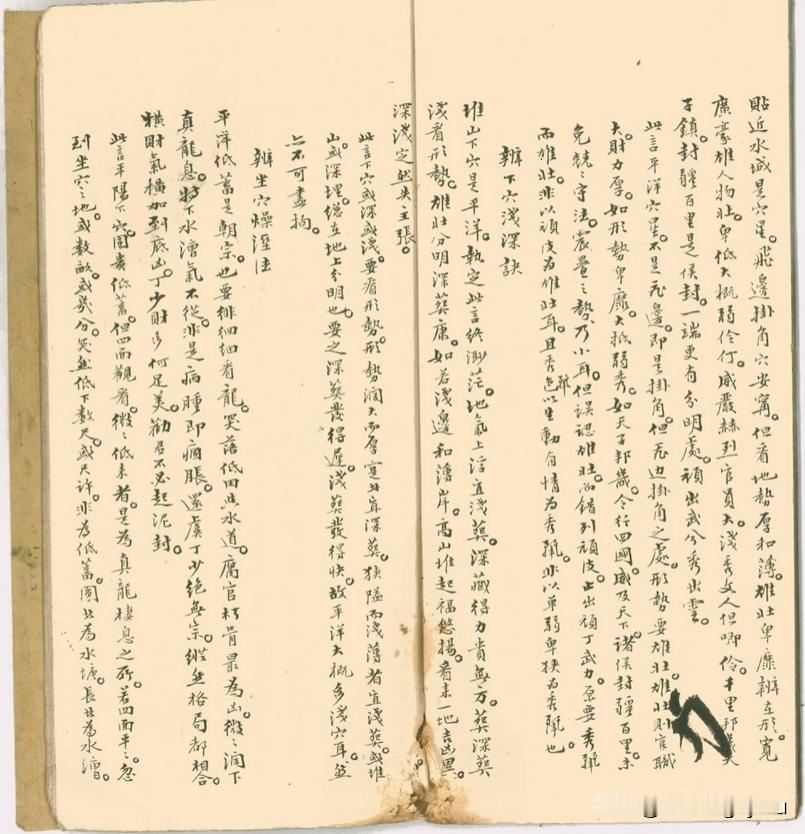 貼近水城是穴星。飛邊掛角穴安寧。但看地勢厚和薄。雄壯卑靡辨在形。寬
廣豪雄人物壯。卑低大概弱伶仃。威嚴赫烈官員大。淺秀文人但唧伶。千里邦畿天
子鎮。封疆百里是侯封。一端更有分明處。頑出武兮秀出雲。
此言平洋穴星。不是死邊。即是掛角。但死边掛角之處。形勢要雄壯。雄壯則官職
大財力厚。如形勢卑靡。大抵弱秀。如天子邦畿。令行四國。威及天下。諸侯封疆百里。未
免兢兢守法。震疊之勢乃小耳。但誤認雄壯。而錯到頑皮。止出頑丁武力。原要秀麗
而雄壯。非以頑皮為雄壯耳。且秀麗以生動有情為秀麗。非以單弱卑狹為秀麗也。
辨下穴淺深訣
堆山下穴是平洋。執定此言終渺茫。地氣上浮宜淺葬。深藏得力貴無方。葬深葬
淺看形勢。雄壯分明深葬康。如若淺邊和薄岸。高山堆起福悠揚。看來一地吉凶異。
深淺定然失主張。
此言下穴或深或淺。要看形勢。形勢闊大而厚寔此宜深葬。狹隘而淺薄者宜淺葬。或堆
山或深埋。總在地上分明也。要之深葬發得遲。淺葬發得快。故平洋大概多淺穴耳。並
亦不可盡拘。
辨坐穴燥溼法
平洋低蓄是朝宗。也要徘徊細看龍。突落低田與水道。腐官朽骨最為凶。微微潤下
真龍息。特下水漕氣不從。非是病腫即痼脹。還虞丁少絕無宗。縱然格局都相合。
橫財氣橫加到底凶。丁少財多何足美。勸君不必起泥封。
此言平陽下穴。固貴低蓄。但四面觀看。微微低來者。是為真龍棲息之所。若四面平平。忽
到坐穴之地。或數畝。或幾分。突然低下數尺。或尺許。非為低蓄。圓此為水塘。長此為水漕。